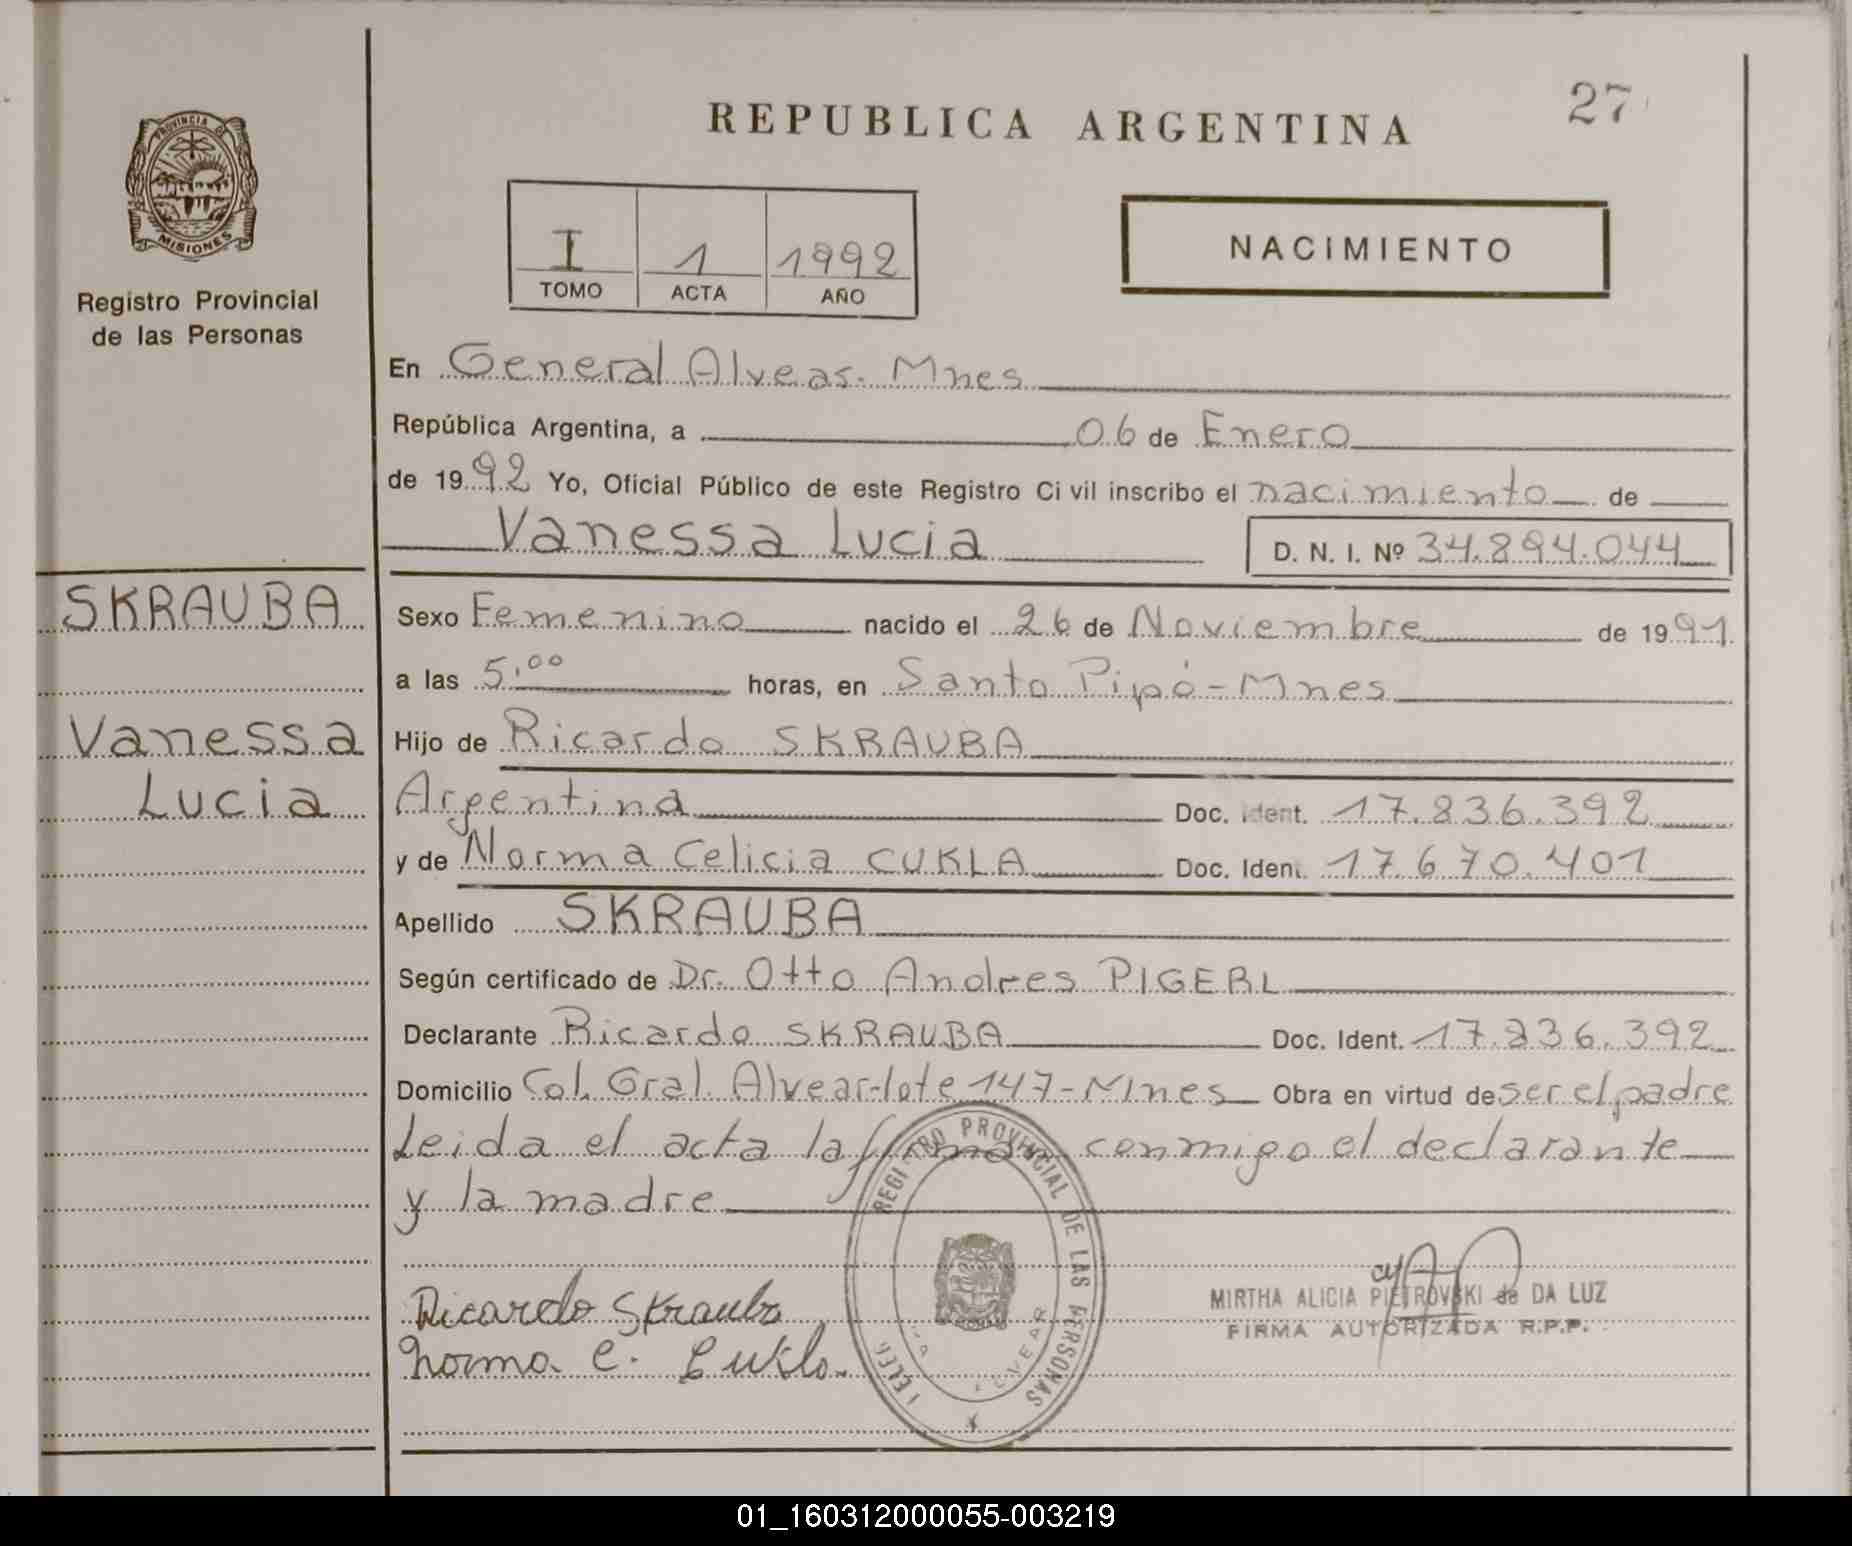 27
REPUBLICA ARGENTINA
PROVINCIA DE
MISIONES
Registro Provincial
de las Personas
I 1 1992
TOMO ACTA AÑO
NACIMIENTO
En General Alvear. Mnes
República Argentina, a 06 de Enero
de 1992 Yo, Oficial Público de este Registro Civil inscribo el nacimiento de
Vanessa Lucia D. N. I. Nº 34.894.044
SKRAUBA
Vanessa
Lucia
Sexo Femenino nacido el 26 de Noviembre de 1991
a las 5,00 horas, en Santo Pipó - Mnes
Hijo de Ricardo SKRAUBA
Argentina Doc. Ident. 17.836.392
y de Norma Celicia CUKLA Doc. Ident. 17.670.401
Apellido SKRAUBA
Según certificado de Dr. Otto Andres PIGERL
Declarante Ricardo SKRAUBA Doc. Ident. 17.836.392
Domicilio Col. Gral. Alvear-lote 147-Mnes Obra en virtud de ser el padre
Leida el acta la firman conmigo el declarante
y la madre
REGISTRO PROVINCIAL DE LAS PERSONAS
Ricardo Skrauba
Norma C. Cukla.
MIRTHA ALICIA PIETROVSKI de DA LUZ
FIRMA AUTORIZADA R.P.P.
01_160312000055-003219